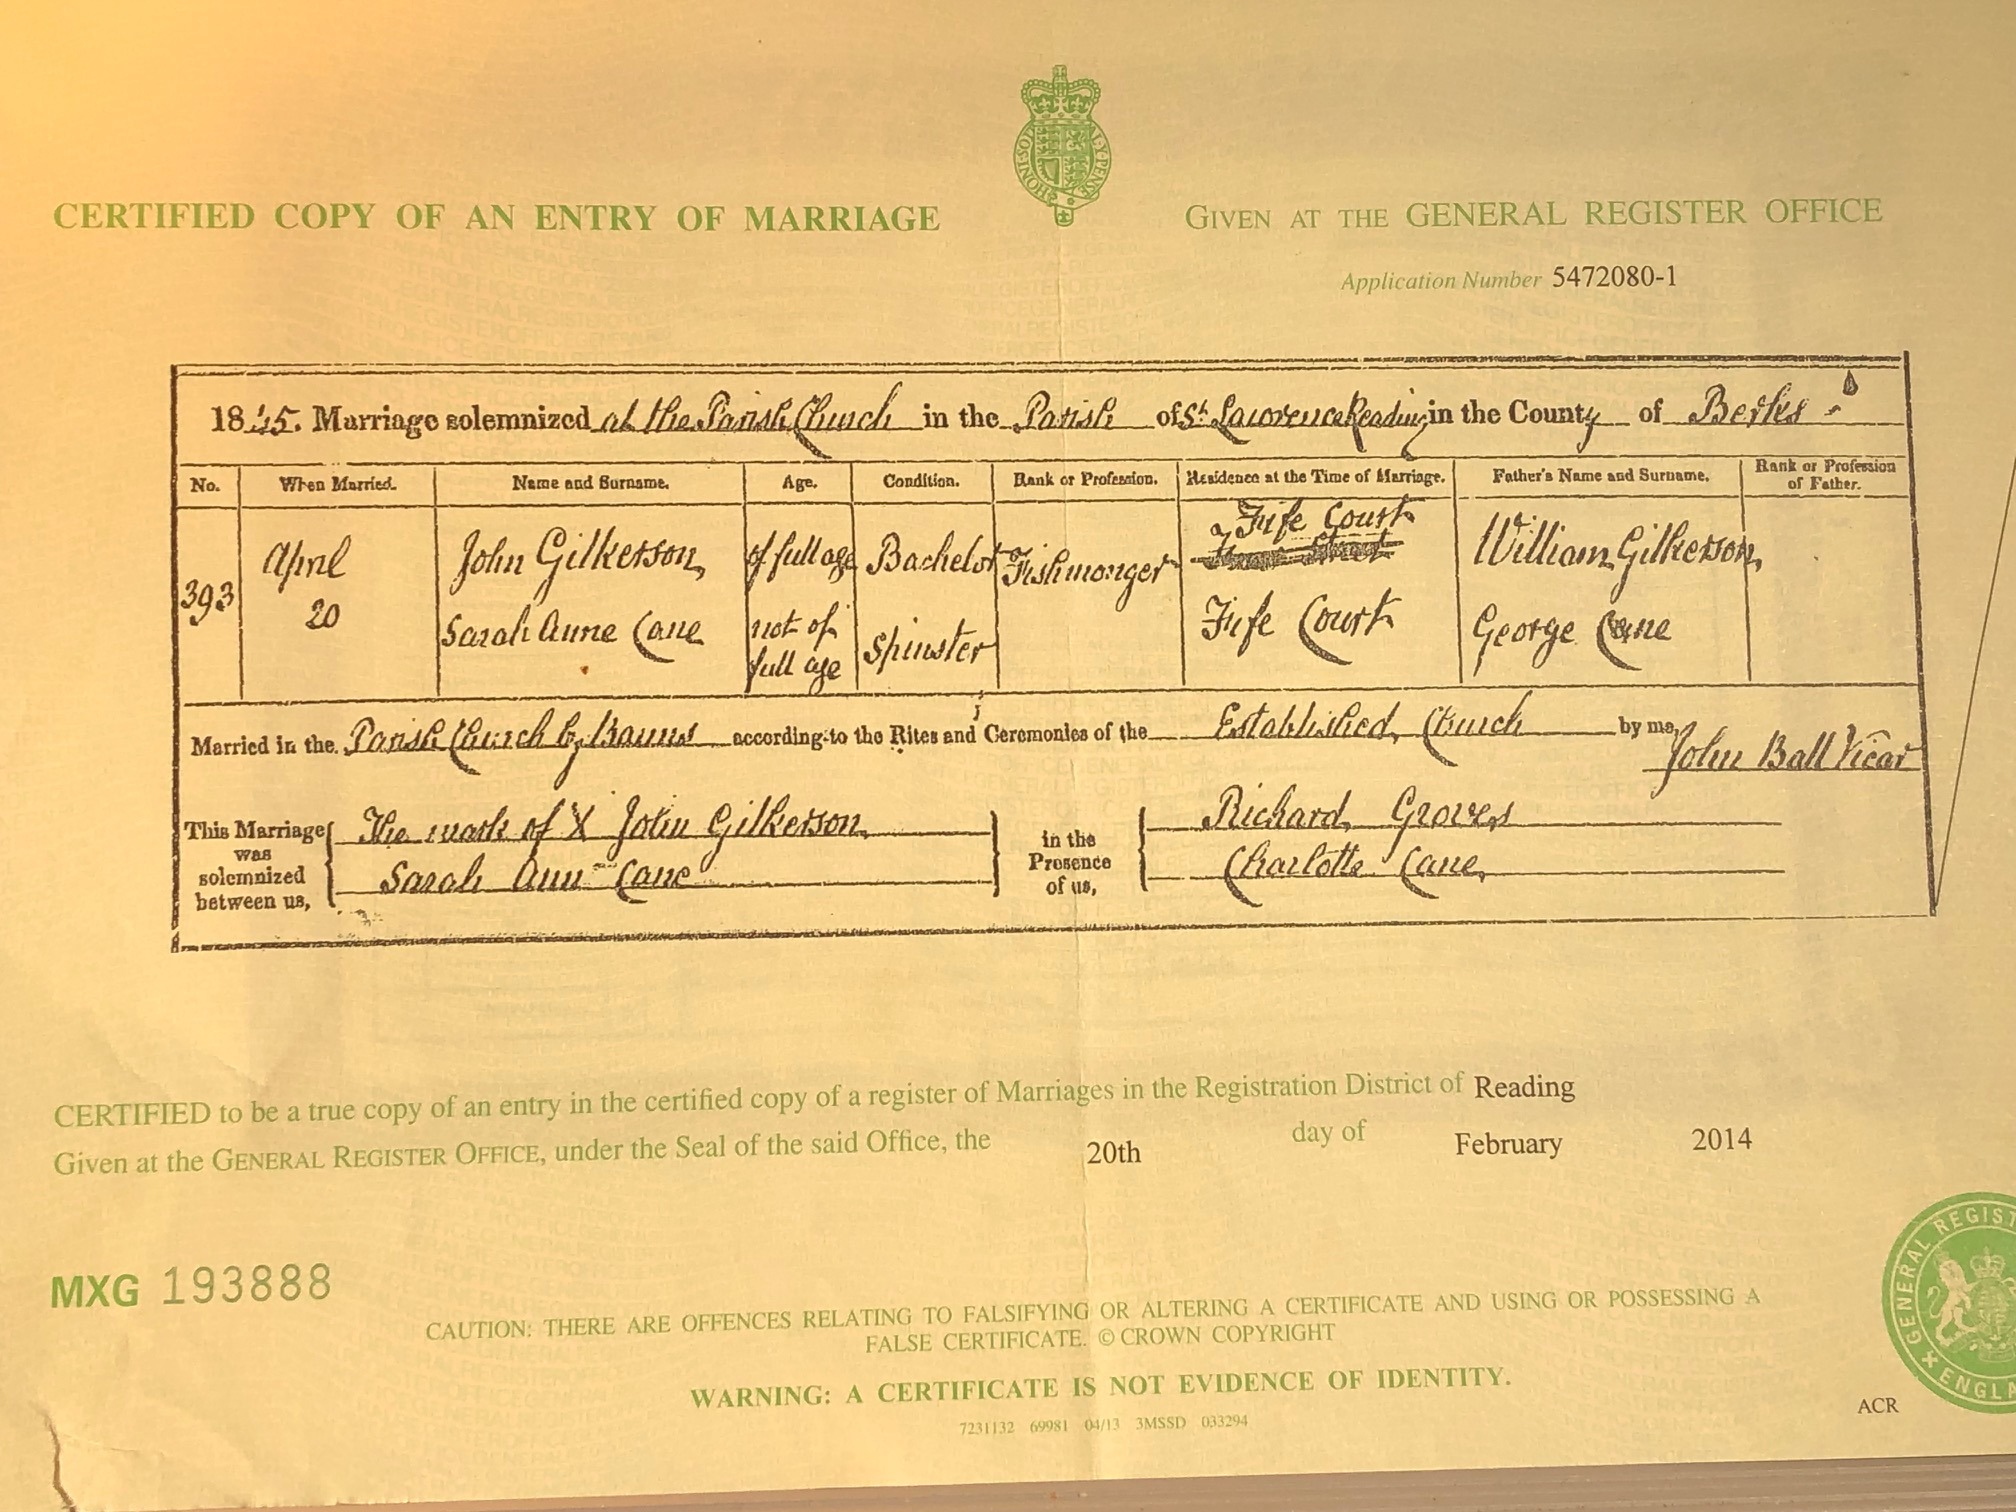 HONI SOIT QUI MAL Y PENSE
CERTIFIED COPY OF AN ENTRY OF MARRIAGE
GIVEN AT THE GENERAL REGISTER OFFICE
Application Number 5472080-1
1845. Marriage solemnized at the Parish Church in the Parish of St. Lawrence Reading in the County of Berks
No. When Married. Name and Surname. Age. Condition. Rank or Profession. Residence at the Time of Marriage. Father's Name and Surname. Rank or Profession of Father.
393 April 20
John Gilkerson, of full age Bachelor Fishmonger Fife Court William Gilkerson,
Sarah Anne Cane not of full age Spinster Fife Court George Cane
Married in the Parish Church by Banns according to the Rites and Ceremonies of the Established Church by me, John Ball Vicar
This Marriage was solemnized between us,
The mark of X John Gilkerson
Sarah Ann Cane
in the Presence of us,
Richard Groves
Charlotte Cane,
CERTIFIED to be a true copy of an entry in the certified copy of a register of Marriages in the Registration District of Reading
Given at the GENERAL REGISTER OFFICE, under the Seal of the said Office, the 20th day of February 2014
MXG 193888
CAUTION: THERE ARE OFFENCES RELATING TO FALSIFYING OR ALTERING A CERTIFICATE AND USING OR POSSESSING A
FALSE CERTIFICATE. © CROWN COPYRIGHT
WARNING: A CERTIFICATE IS NOT EVIDENCE OF IDENTITY.
7231132 69981 04/13 3MSSD 033294
GENERAL REGIST
ENGLA
ACR